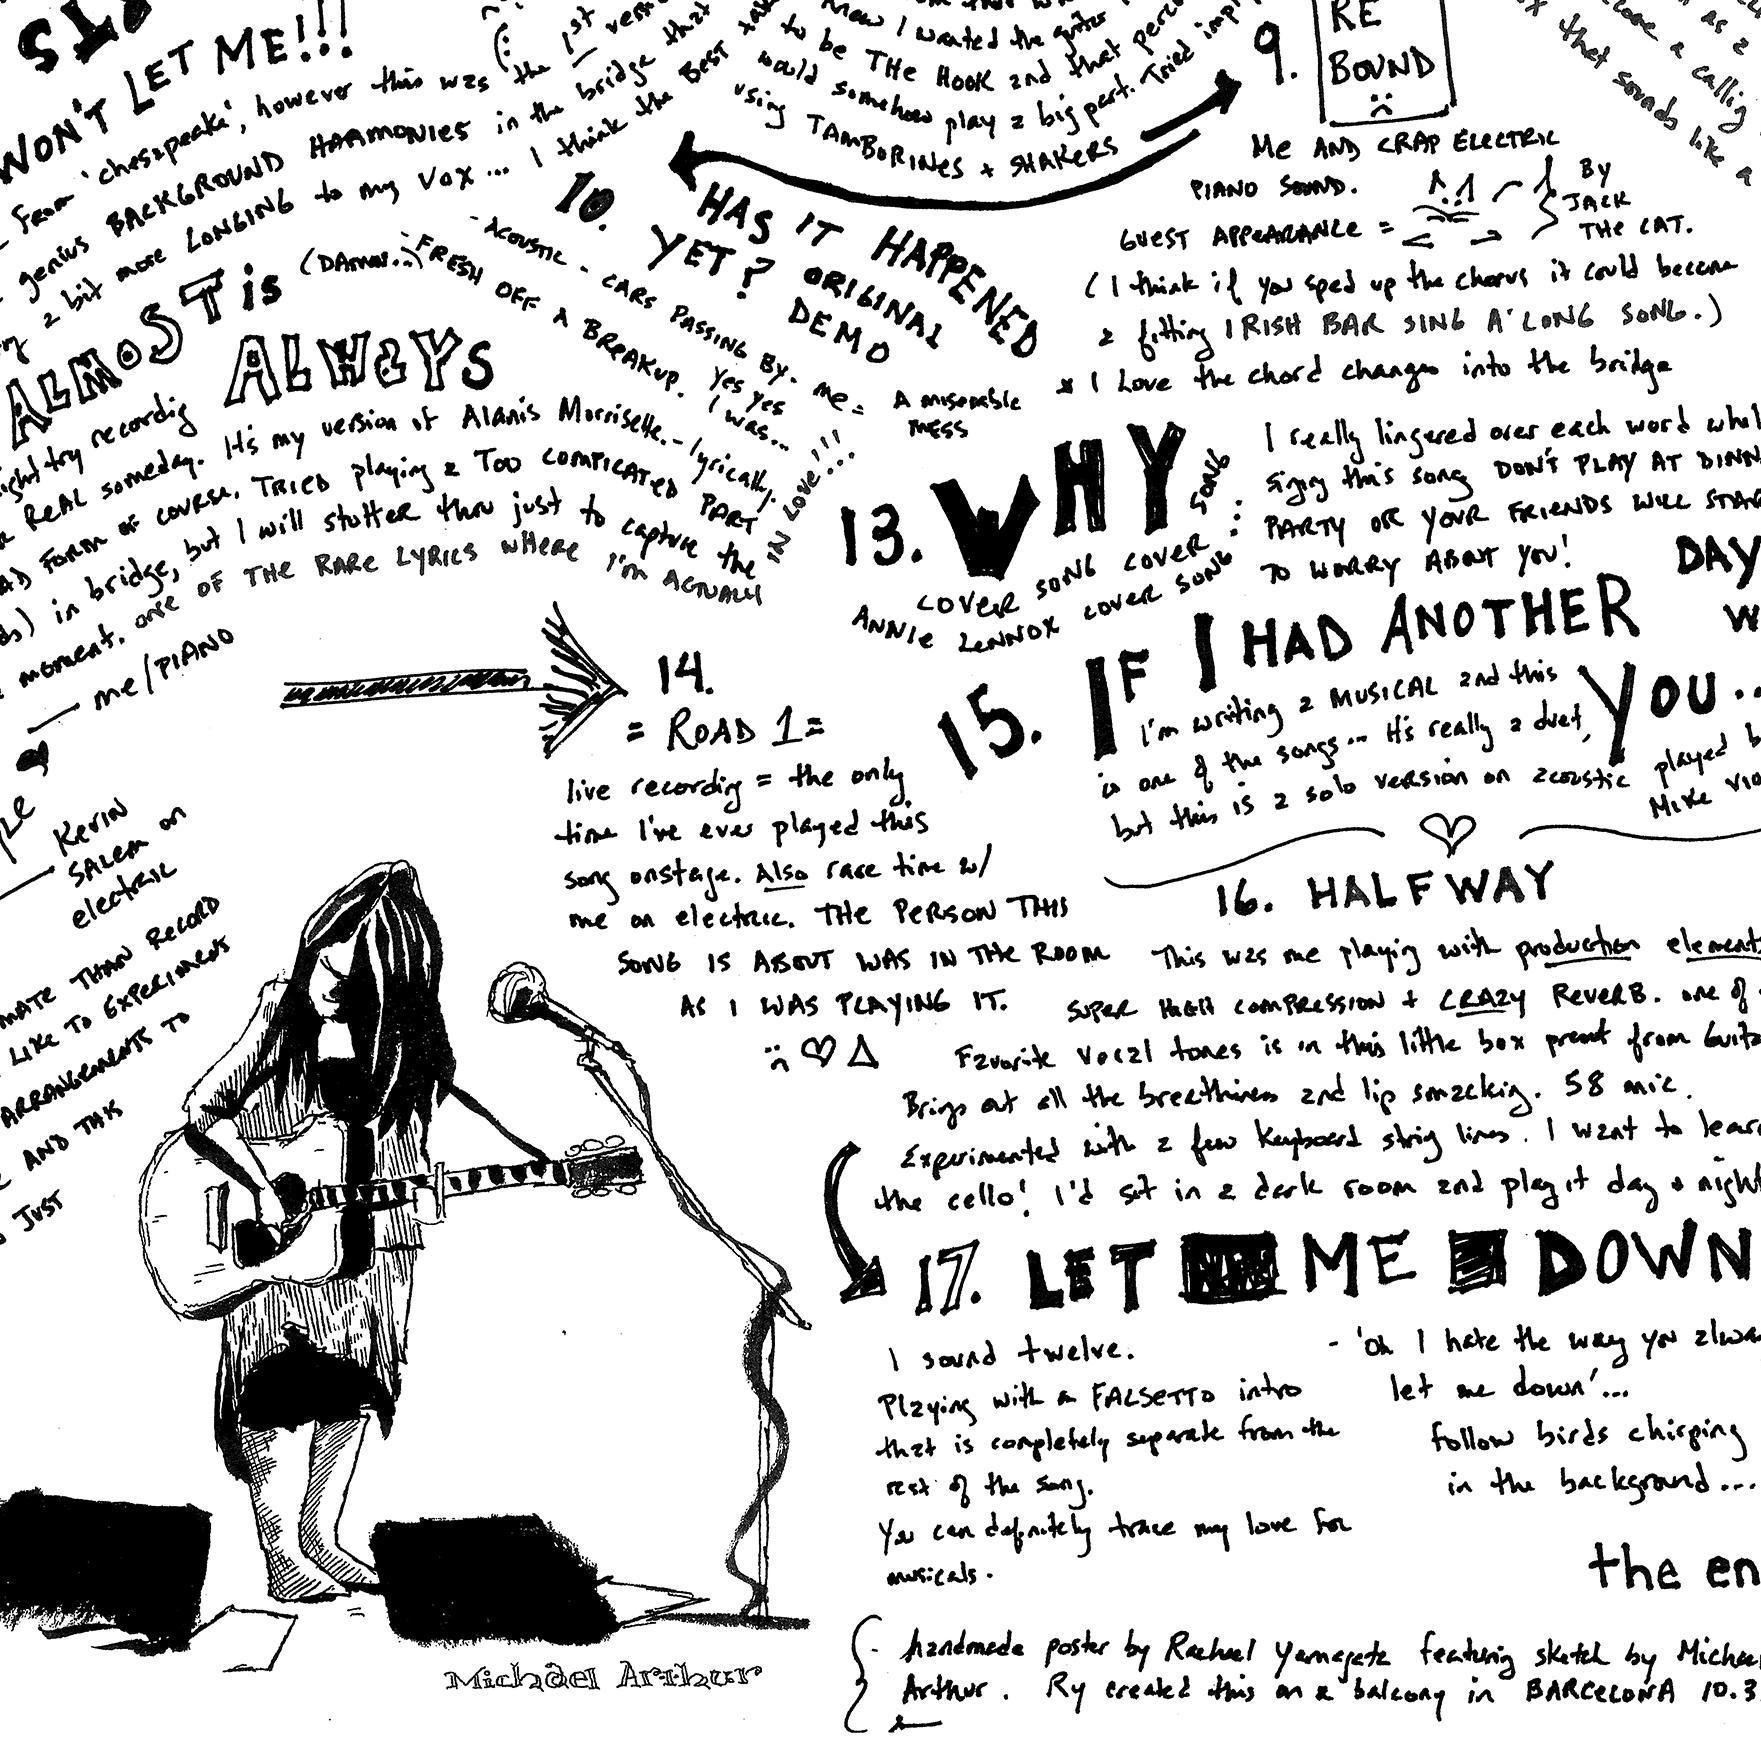 WON'T LET ME!!!
from 'chesapeake', however this was the 1st
genius BACKGROUND HARMONIES in the bridge that
2 bit more LONGING to my vox... I think the BEST
now I wanted the guitar
to be THE HOOK and that
would somehow play a big part. Tried
using TAMBORINES + SHAKERS
9. RE
BOUND
ME AND CRAP ELECTRIC
PIANO SOUND.
GUEST APPEARANCE =
BY
JACK
THE CAT.
(I think if you sped up the chorus it could become
a fitting IRISH BAR SING A'LONG SONG.)
* I Love the chord changes into the bridge
as a
calling
that sounds like a
10. HAS IT HAPPENED
YET? ORIGINAL
DEMO
-ACOUSTIC - CARS PASSING BY. me = A miserable
mess
FRESH OFF A BREAKUP. Yes yes
I was...
ALMOST is (DAMN..)
ALWAYS
might try recording
REAL someday. It's my version of Alanis Morrisette.-lyrically.
FORM OF COURSE. TRIED playing a TOO COMPICATED PART
in bridge, but I will stutter thru just to capture the
moment. one OF THE RARE LYRICS WHERE I'm ACTUALLY
IN LOVE!!!
me/PIANO
13. WHY
COVER SONG COVER SONG
ANNIE LENNOX COVER SONG
I really lingered over each word
singing this song DON'T PLAY AT
PARTY OR YOUR FRIENDS WILL
TO WORRY ABOUT YOU!
14.
= ROAD 1 =
live recording = the only
time I've ever played this
song onstage. Also rare time w/
me on electric. THE PERSON THIS
SONG IS ABOUT WAS IN THE ROOM
AS I WAS PLAYING IT.
15. IF I HAD ANOTHER
DAY
W
YOU...
I'm writing a MUSICAL and this
is one of the songs... It's really a duet,
but this is a solo version on acoustic
played b
MIKE VIO
Kevin
SALEM on
electric
THAN RECORD
LIKE TO EXPERIMENT
ARRANGEMENTS TO
AND THIS
JUST
16. HALFWAY
This was me playing with production element
SUPER HIGH COMPRESSION + CRAZY REVERB. one of
Favorite vocal tones is in this little box preout from Guita
Brings out all the breathiness and lip smacking. 58 mic.
Experimented with a few keyboard string lines. I want to lear
the cello! I'd sit in a dark room and play it day + night
17. LET ME DOWN
I sound twelve.
Playing with a FALSETTO intro
that is completely separate from the
rest of the song.
You can definitely trace my love for
musicals.
- 'oh I hate the way you alwa
let me down'...
follow birds chirping
in the background...
the en
Michael Arthur
handmade poster by Rachael Yamagata featuring sketch by Michae
Arthur. Ry created this on a balcony in BARCELONA 10.3